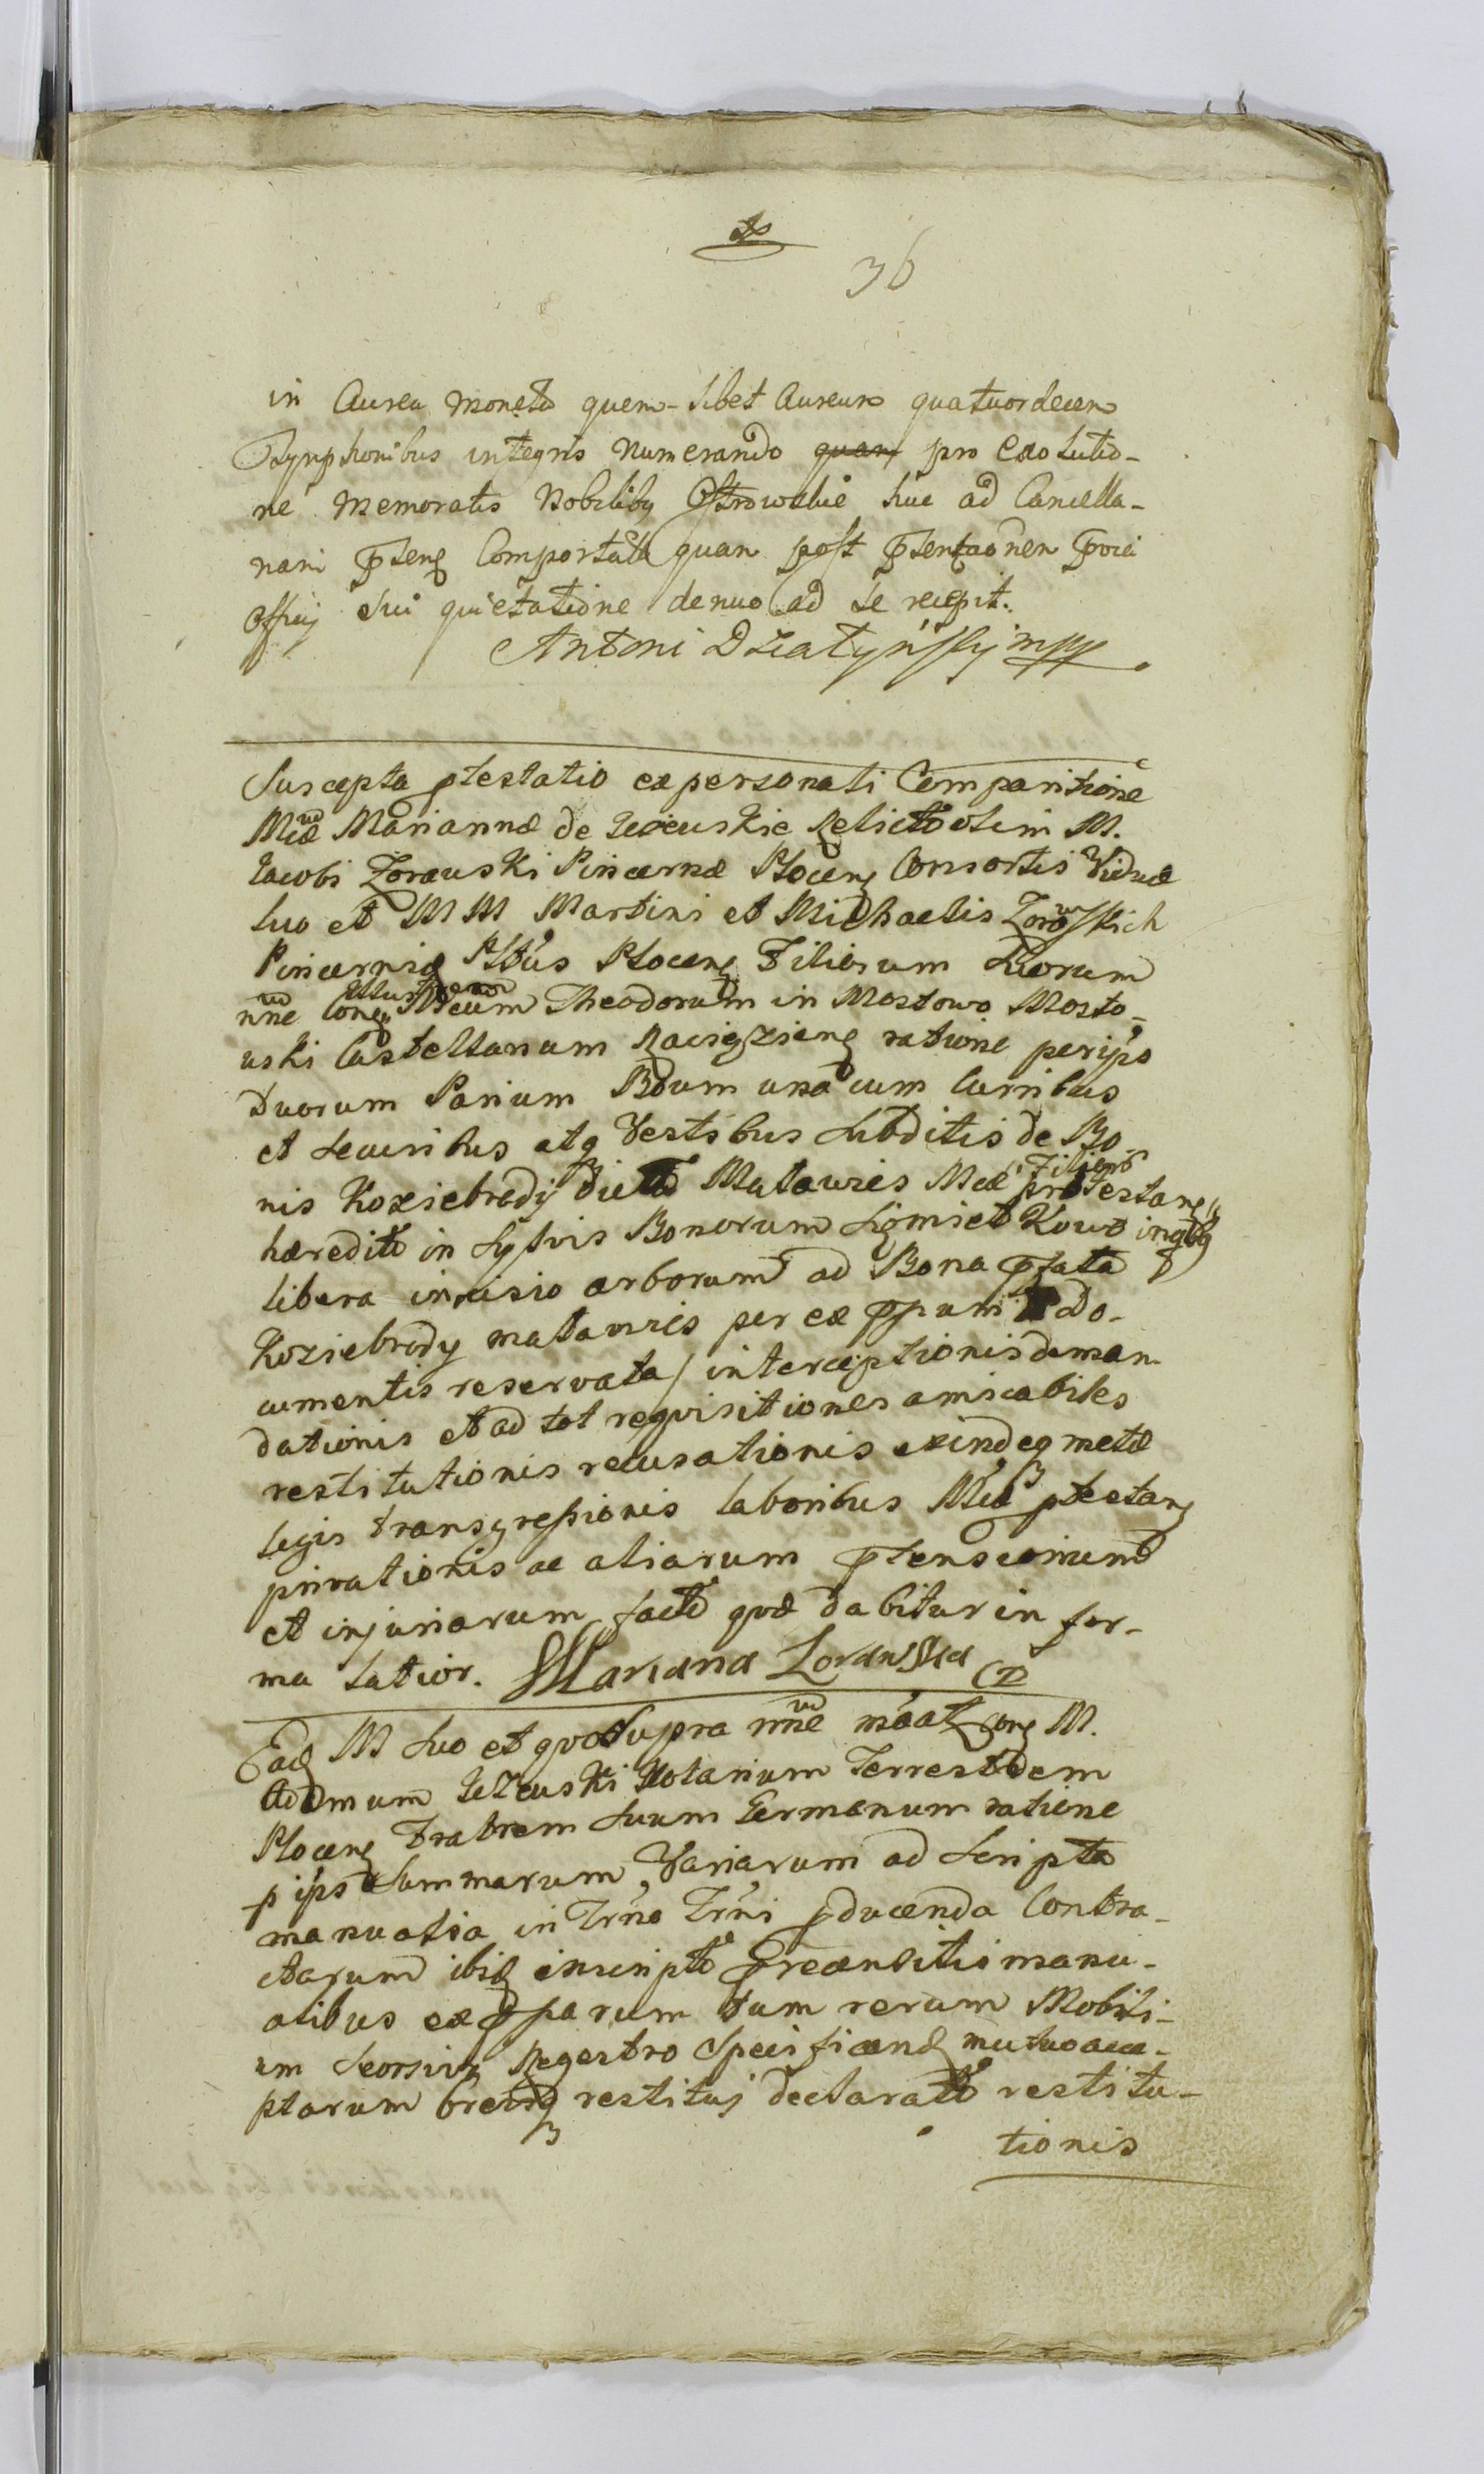 36
in Aurea Moneta quem-libet Aureum quatuordecem
Tymphonibus integris Numerando quam pro Exolutio-
ne Memoratis Nobilibq Ostrowskie huc ad Cancella-
riam pntenq Comportata quam post pntentaonem
Officij sui quietatione denuo ad se recepit.
Antoni Działyńsky mpp
Suscepta ptestatio ex personali Comparitione
Mcae Mariannae de Jezewskie Relictae olim M.
Jacobi Żorawski Pincernae Plocenq Consortis Viduae
suo et MM Martini et Michaelis Żorawskich
Pincernidq Pltus Plocenq Filiorum Suorum
nne Conq Illus Mcum Theodorum in Mostowo Mosto-
wski Castellanum Raciążienq ratione per ips
Duorum Parium Boum una cum Curribus
et Securibus atq Vestibus Subditis de Bo-
nis Koziebrody dictae Matawies Mcae Filiorq protestanq
haeredit in Sylvis Bonorum Ligmiet Kowo inqbq
libera incisio arborum ad Bona pfata
Koziebrody matawies per ex ppum Do-
cumentis reservata / interceptionis deman-
dationis et ad tot requisitiones amicabiles
restitutionis recusationis exindeq metae
legis transgressionis laboribus Mcae ptestanq
privationis ac aliarum ptensionum
et injuriarum factae qvae dabitur in for-
ma latior. Marianna Żorawska
Eadq M Suo et quo Supra nne mat Conq M.
Adamum Jezewski Notarium Terrestrem
Plocenq Fratrem Suum Germanum ratione
p ips Summarum Variarum ad Scripta
manualia in Trno Trni pducenda Contra-
ctarum ibidq inscript preallitis manu-
alibus ex pparum tum rerum Mobili-
um Seorsivq Regestro Specificandq mutuo acce-
ptarum brevq restitui declarat restitu-
tionis